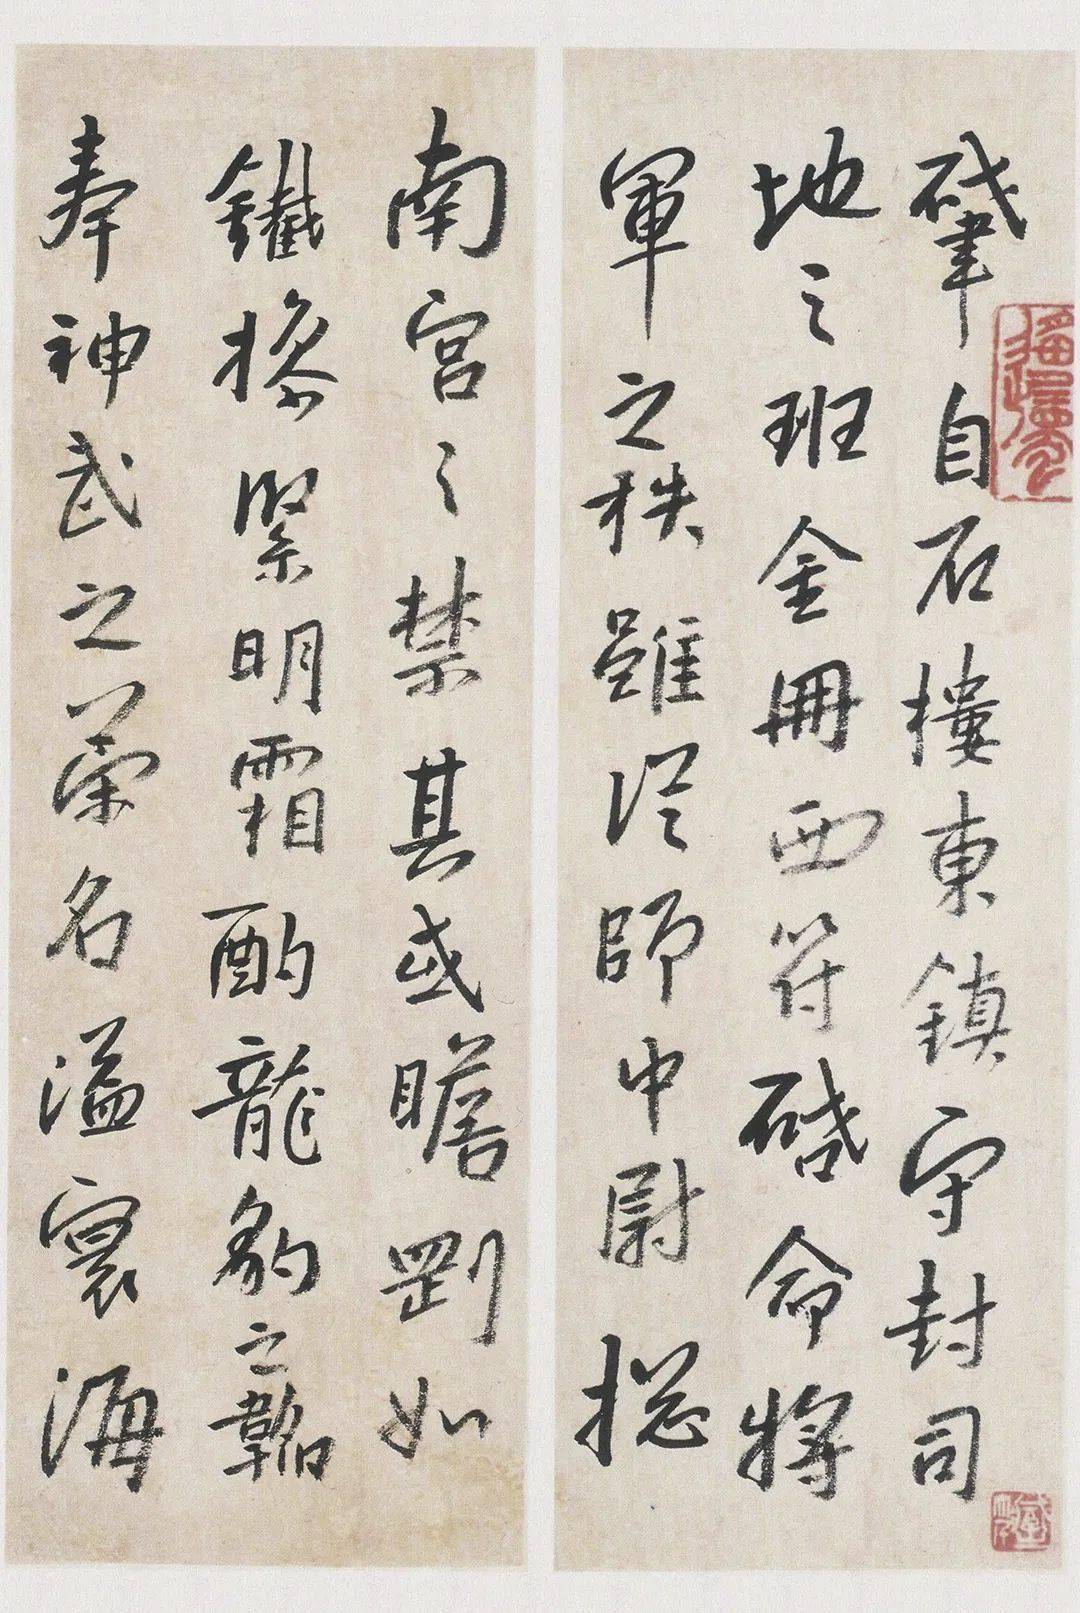 肈自石樓東鎮守封司
地之班金冊西符啓命將
軍之秩雖從師中尉揔
南宮之禁其或瞻劉如
鐵操緊明霜酌龍豹之韜
奉神武之榮名溢寰海